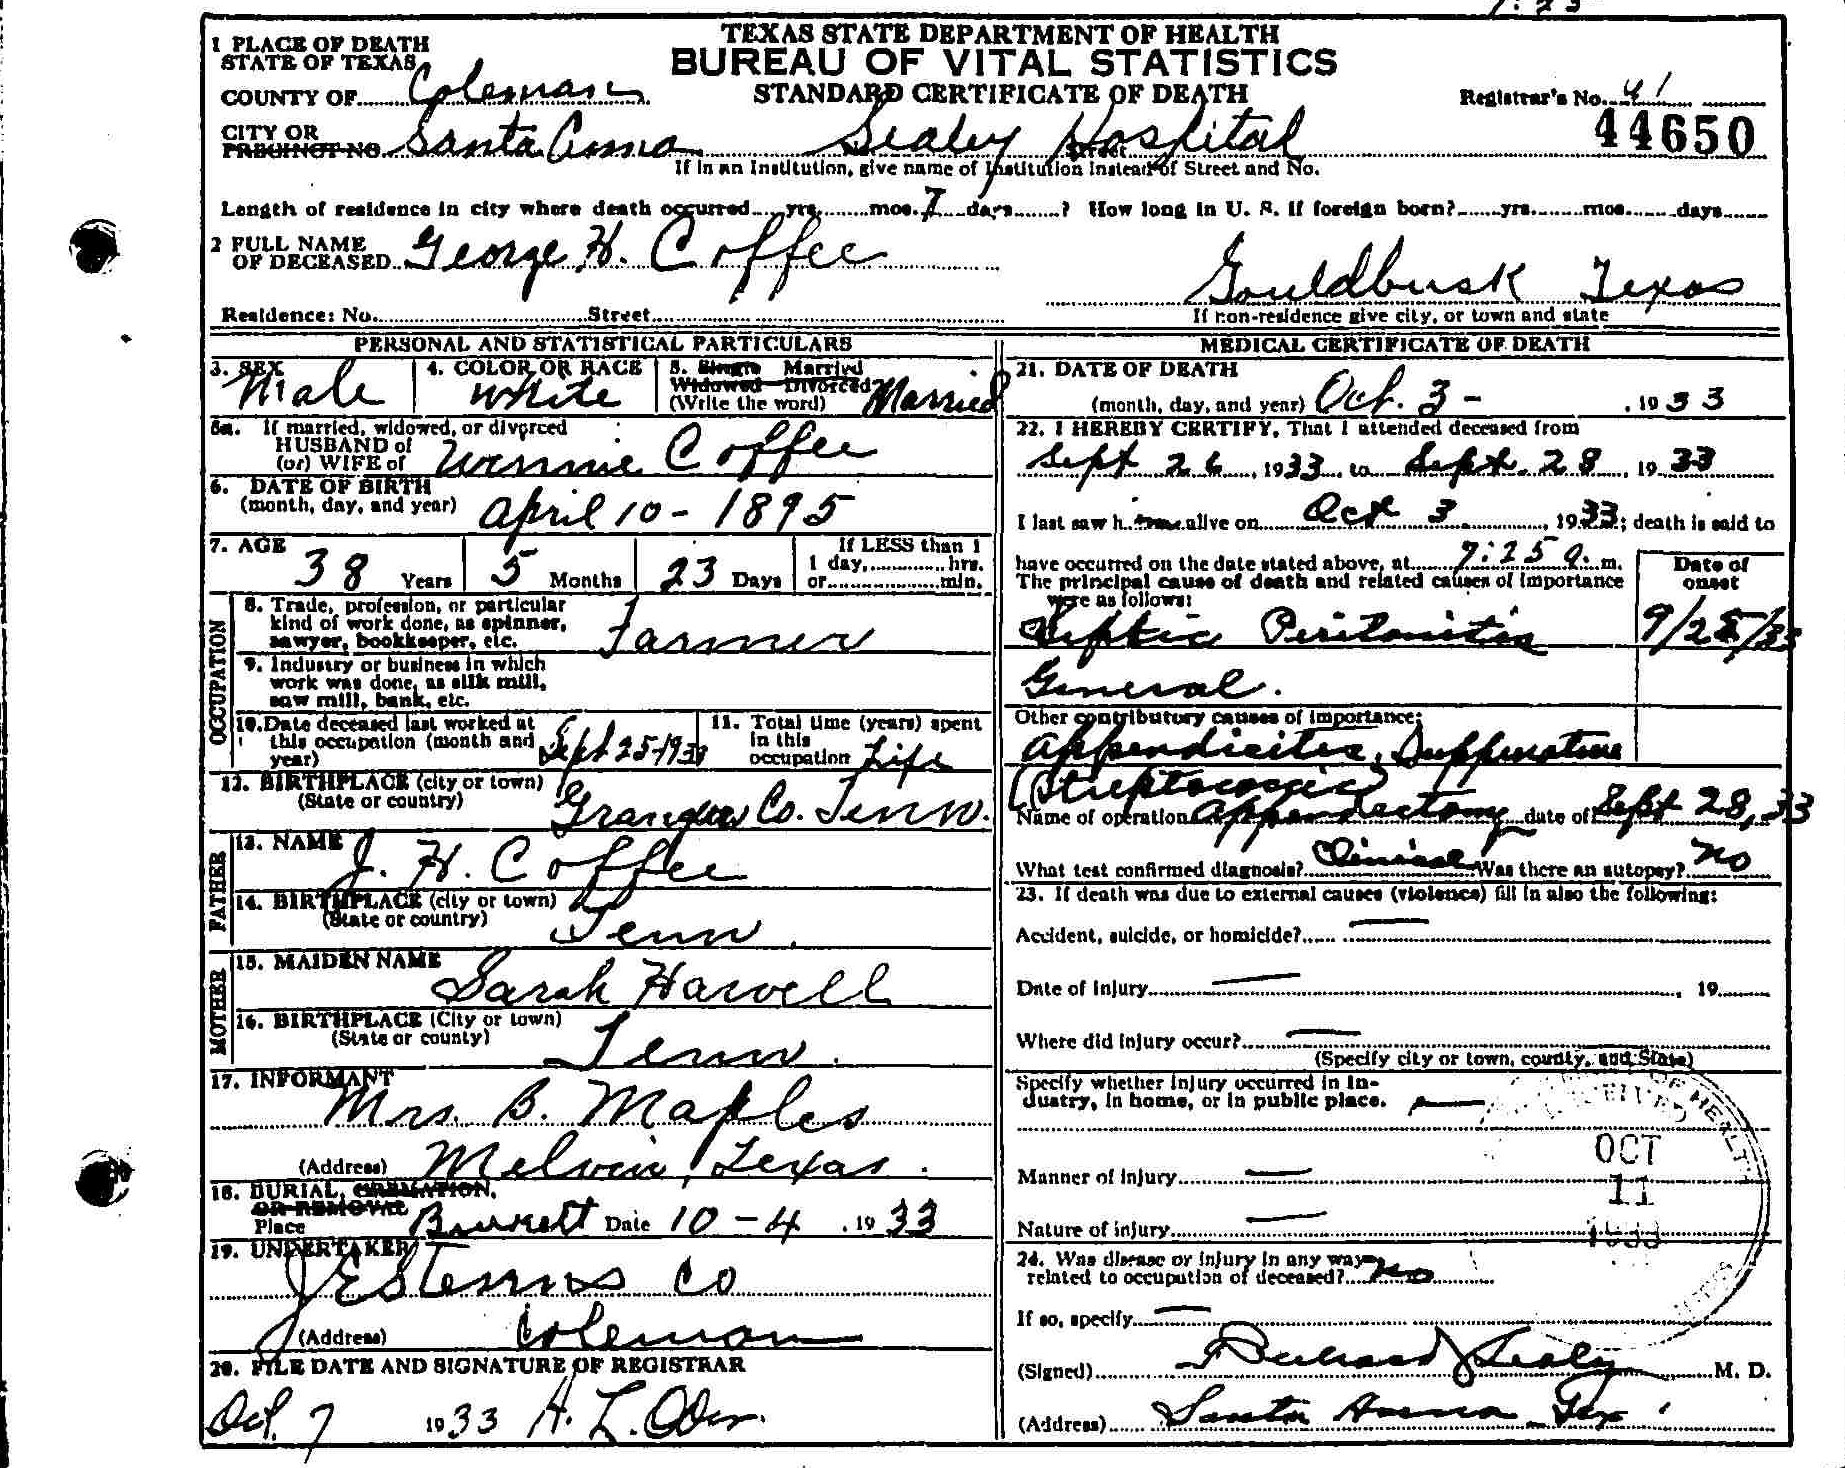 TEXAS STATE DEPARTMENT OF HEALTH
BUREAU OF VITAL STATISTICS
STANDARD CERTIFICATE OF DEATH
1 PLACE OF DEATH
STATE OF TEXAS
COUNTY OF Coleman
Registrar's No. 41
44650
CITY OR PRECINCT NO. Santa Anna Sealey Hospital Street
If in an Institution, give name of Institution instead of Street and No.
Length of residence in city where death occurred yrs. mos. 7 days ? How long in U. S. if foreign born? yrs. mos. days
2 FULL NAME OF DECEASED George H. Coffee
Gouldbusk Texas
Residence: No. Street
If non-residence give city, or town and state
PERSONAL AND STATISTICAL PARTICULARS
3. SEX Male
4. COLOR OR RACE White
5. Single Married Widowed Divorced (Write the word) Married
5a. If married, widowed, or divorced
HUSBAND of
(or) WIFE of Winnie Coffee
6. DATE OF BIRTH
(month, day, and year) April 10 - 1895
7. AGE 38 Years 5 Months 23 Days
If LESS than 1
1 day, hrs.
or min.
OCCUPATION
8. Trade, profession, or particular
kind of work done, as spinner,
sawyer, bookkeeper, etc. Farmer
9. Industry or business in which
work was done, as silk mill,
saw mill, bank, etc.
10. Date deceased last worked at
this occupation (month and
year) Sept 25-1933
11. Total time (years) spent
in this
occupation Life
12. BIRTHPLACE (city or town)
(State or country) Co. Tenn.
FATHER
13. NAME J. H. Coffee
14. BIRTHPLACE (city or town)
(State or country) Tenn.
MOTHER
15. MAIDEN NAME Sarah Harvell
16. BIRTHPLACE (City or town)
(State or county) Tenn.
17. INFORMANT
Mrs. B. Maples
(Address) Melvin, Texas.
18. BURIAL, CREMATION,
OR REMOVAL
Place Burkett Date 10-4, 1933
19. UNDERTAKER
J E Stevens Co
(Address) Coleman
20. FILE DATE AND SIGNATURE OF REGISTRAR
Oct. 7 1933 A. L. Oder.
MEDICAL CERTIFICATE OF DEATH
21. DATE OF DEATH
(month, day, and year) Oct. 3 - , 1933
22. I HEREBY CERTIFY, That I attended deceased from
Sept 26, 1933 to Sept. 28, 1933
I last saw him alive on Oct 3, 1933; death is said to
have occurred on the date stated above, at 7:25 a. m.
The principal cause of death and related causes of importance
were as follows:
Date of
onset
Septic Peritonitis 9/25/33
General.
Other contributory causes of importance:
Appendicitis, Suppurative
(Streptococcic)
Name of operation Appendectomy date of Sept 28, 33
What test confirmed diagnosis? Clinical Was there an autopsy? No
23. If death was due to external causes (violence) fill in also the following:
Accident, suicide, or homicide? —
Date of injury — , 19
Where did injury occur? —
(Specify city or town, county, and State)
Specify whether injury occurred in in-
dustry, in home, or in public place. —
Manner of injury —
Nature of injury —
OCT
11
1933
24. Was disease or injury in any way
related to occupation of deceased? No
If so, specify —
(Signed) Sealy M. D.
(Address) Santa Anna Tex